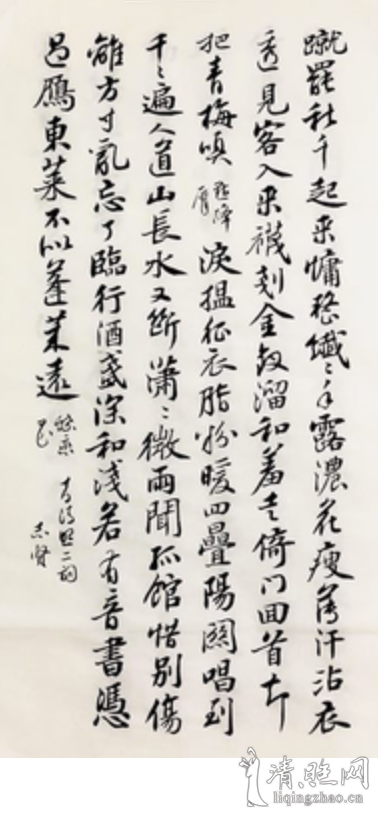 蹴罷秋千起来慵整纖々手露濃花瘦薄汗沾衣
透見客入来襪剗金釵溜和羞走倚門回首却
把青梅嗅 點絳唇 淚搵征衣脂粉暖四疊陽關唱到
千々遍人道山長水又斷瀟々微雨聞孤館惜別傷
離方寸亂忘了臨行酒盞深和淺若有音書憑
過鴈東萊不似蓬萊遠 蝶戀花 李清照二詞
志賢
清照网
liqingzhao.cn